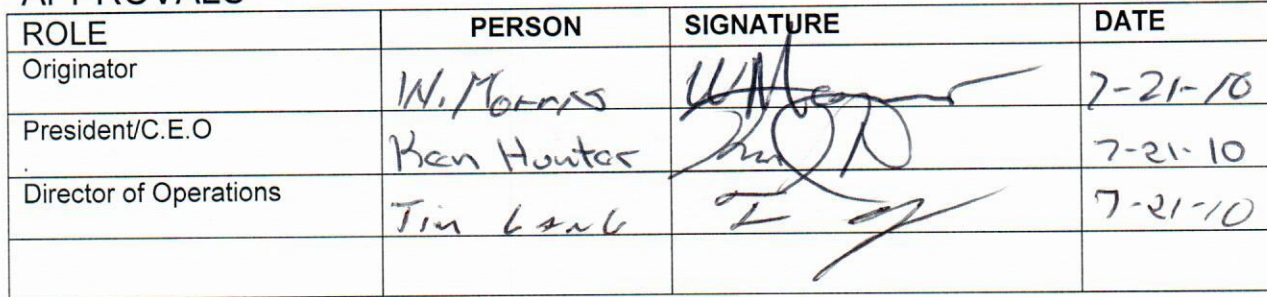 APPROVALS
ROLE PERSON SIGNATURE DATE
Originator W. Morris 7-21-10
President/C.E.O Ken Hunter 7-21-10
Director of Operations Tim 7-21-10